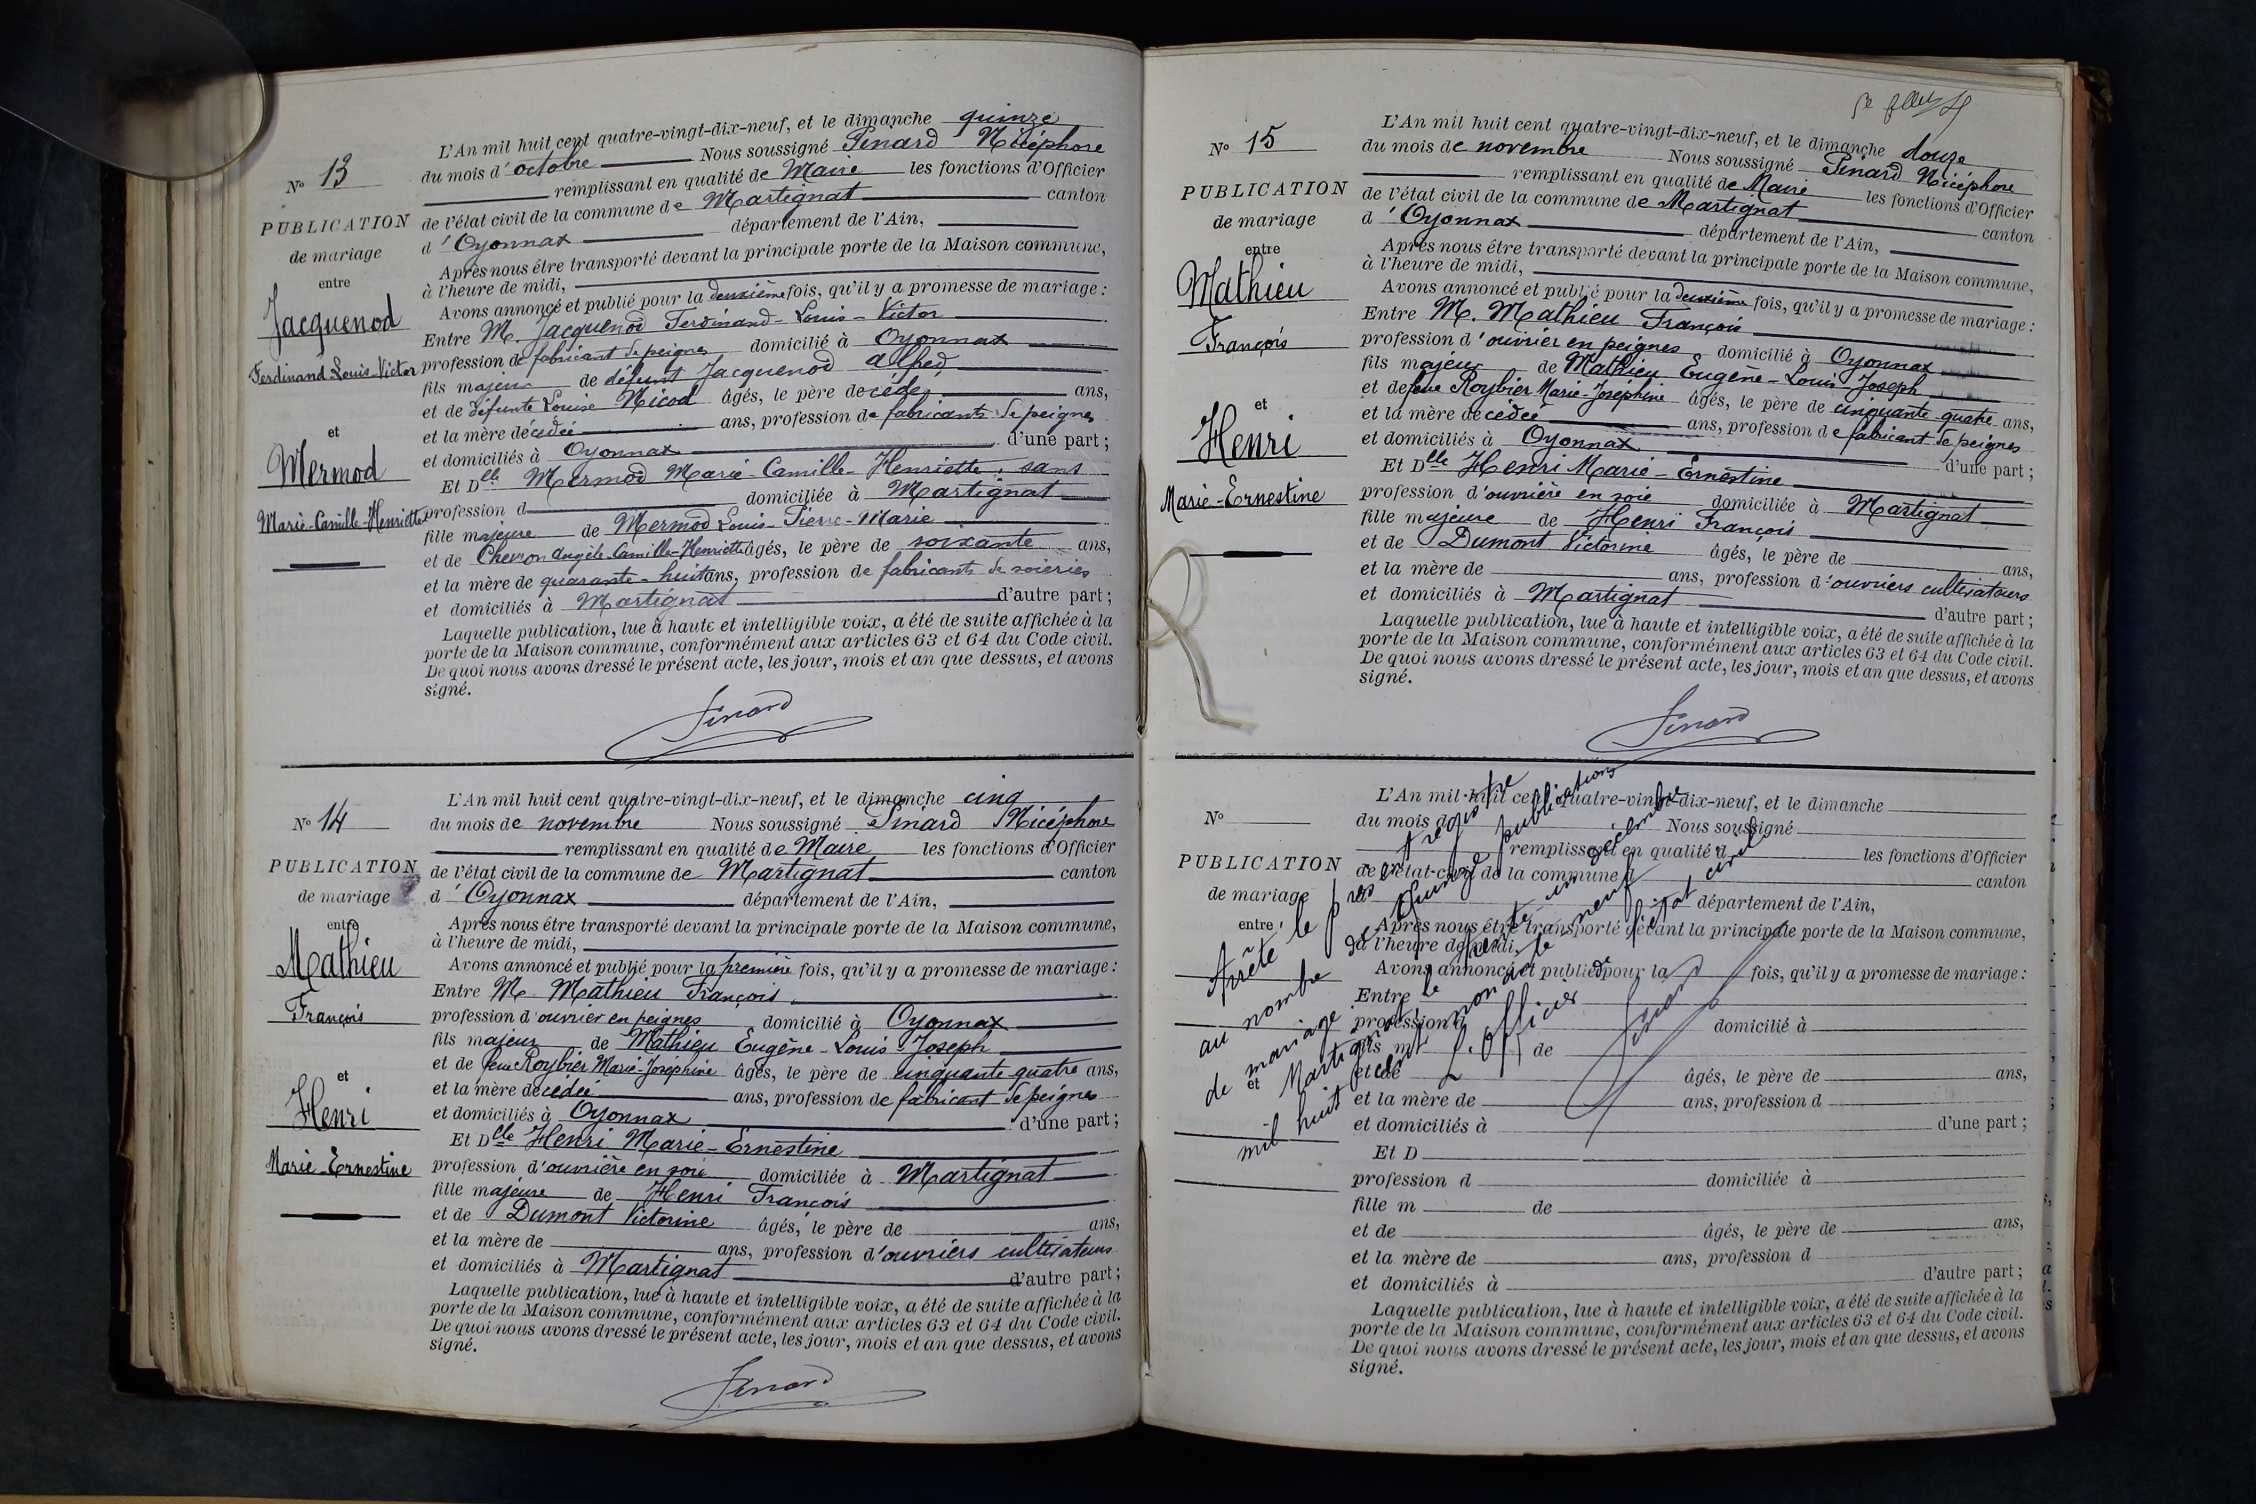 N° 13
PUBLICATION
de mariage
entre
Jacquenod
Ferdinand Louis-Victor
et
Mermod
Marie-Camille-Henriette
L'An mil huit cent quatre-vingt-dix-neuf, et le dimanche quinze
du mois d'octobre Nous soussigné Pinard Nicéphore
remplissant en qualité de Maire les fonctions d'Officier
de l'état civil de la commune de Martignat canton
d'Oyonnax département de l'Ain,
Après nous être transporté devant la principale porte de la Maison commune,
à l'heure de midi,
Avons annoncé et publié pour la deuxième fois, qu'il y a promesse de mariage :
Entre M. Jacquenod Ferdinand-Louis-Victor
profession de fabricant de peignes domicilié à Oyonnax
fils majeur de défunt Jacquenod Alfed
et de défunte Louise Nicod âgés, le père de cédé, ans,
et la mère décédée ans, profession de fabricants de peignes
et domiciliés à Oyonnax d'une part ;
Et Dlle Mermod Marie-Camille-Henriette, sans
profession d domiciliée à Martignat
fille majeure de Mermod Louis-Pierre-Marie
et de Chevron Angèle-Camille-Henriette âgés, le père de soixante ans,
et la mère de quarante-huit ans, profession de fabricants de soieries
et domiciliés à Martignat d'autre part ;
Laquelle publication, lue à haute et intelligible voix, a été de suite affichée à la
porte de la Maison commune, conformément aux articles 63 et 64 du Code civil.
De quoi nous avons dressé le présent acte, les jour, mois et an que dessus, et avons
signé.
Pinard
N° 14
PUBLICATION
de mariage
entre
Mathieu
François
et
Henri
Marie-Ernestine
L'An mil huit cent quatre-vingt-dix-neuf, et le dimanche cinq
du mois de novembre Nous soussigné Pinard Nicéphore
remplissant en qualité de Maire les fonctions d'Officier
de l'état civil de la commune de Martignat canton
d'Oyonnax département de l'Ain,
Après nous être transporté devant la principale porte de la Maison commune,
à l'heure de midi,
Avons annoncé et publié pour la première fois, qu'il y a promesse de mariage :
Entre M. Mathieu François
profession d'ouvrier en peignes domicilié à Oyonnax
fils majeur de Mathieu Eugène-Louis-Joseph
et de feue Roybier Marie-Joséphine âgés, le père de cinquante-quatre ans,
et la mère décédée ans, profession de fabricant de peignes
et domiciliés à Oyonnax d'une part ;
Et Dlle Henri Marie-Ernestine
profession d'ouvrière en soie domiciliée à Martignat
fille majeure de Henri François
et de Dumont Victorine âgés, le père de ans,
et la mère de ans, profession d'ouvriers cultivateurs
et domiciliés à Martignat d'autre part ;
Laquelle publication, lue à haute et intelligible voix, a été de suite affichée à la
porte de la Maison commune, conformément aux articles 63 et 64 du Code civil.
De quoi nous avons dressé le présent acte, les jour, mois et an que dessus, et avons
signé.
Pinard
N° 15
PUBLICATION
de mariage
entre
Mathieu
François
et
Henri
Marie-Ernestine
L'An mil huit cent quatre-vingt-dix-neuf, et le dimanche douze
du mois de novembre Nous soussigné Pinard Nicéphore
remplissant en qualité de Maire les fonctions d'Officier
de l'état civil de la commune de Martignat canton
d'Oyonnax département de l'Ain,
Après nous être transporté devant la principale porte de la Maison commune,
à l'heure de midi,
Avons annoncé et publié pour la deuxième fois, qu'il y a promesse de mariage :
Entre M. Mathieu François
profession d'ouvrier en peignes domicilié à Oyonnax
fils majeur de Mathieu Eugène-Louis-Joseph
et de feue Roybier Marie-Joséphine âgés, le père de cinquante-quatre ans,
et la mère décédée ans, profession de fabricant de peignes
et domiciliés à Oyonnax d'une part ;
Et Dlle Henri Marie-Ernestine
profession d'ouvrière en soie domiciliée à Martignat
fille majeure de Henri François
et de Dumont Victorine âgés, le père de ans,
et la mère de ans, profession d'ouvriers cultivateurs
et domiciliés à Martignat d'autre part ;
Laquelle publication, lue à haute et intelligible voix, a été de suite affichée à la
porte de la Maison commune, conformément aux articles 63 et 64 du Code civil.
De quoi nous avons dressé le présent acte, les jour, mois et an que dessus, et avons
signé.
Pinard
N°
PUBLICATION
de mariage
entre
et
L'An mil huit cent quatre-vingt-dix-neuf, et le dimanche
du mois d Nous soussigné
remplissant en qualité d les fonctions d'Officier
de l'état civil de la commune d canton
d département de l'Ain,
Après nous être transporté devant la principale porte de la Maison commune,
à l'heure de midi,
Avons annoncé et publié pour la fois, qu'il y a promesse de mariage :
Entre
profession d domicilié à
fils m de
et de âgés, le père de ans,
et la mère de ans, profession d
et domiciliés à d'une part ;
Et D
profession d domiciliée à
fille m de
et de âgés, le père de ans,
et la mère de ans, profession d
et domiciliés à d'autre part ;
Laquelle publication, lue à haute et intelligible voix, a été de suite affichée à la
porte de la Maison commune, conformément aux articles 63 et 64 du Code civil.
De quoi nous avons dressé le présent acte, les jour, mois et an que dessus, et avons
signé.
Arrêté le présent registre
au nombre de quinze publications
de mariage
Martignat, le trente-un décembre
mil huit cent nonante neuf
L'Officier de l'état civil
Pinard